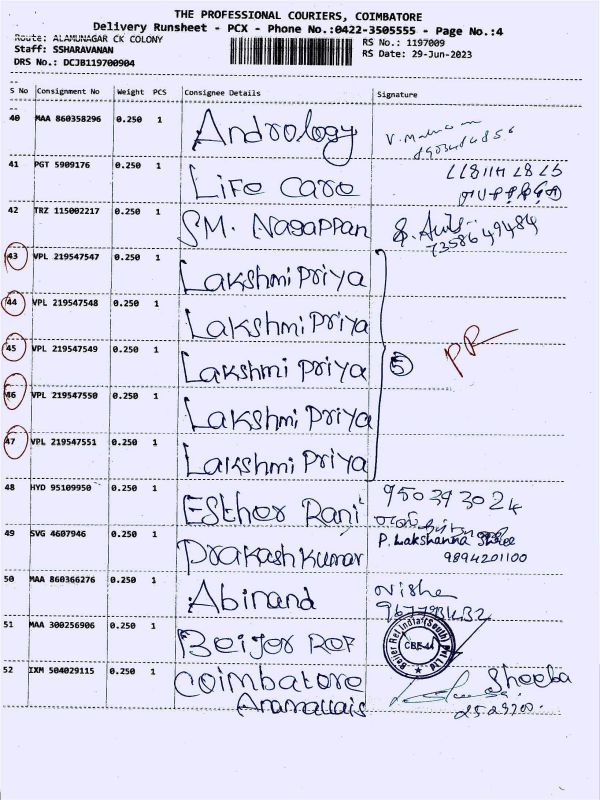 THE PROFESSIONAL COURIERS, COIMBATORE
Delivery Runsheet - PCX - Phone No.:0422-3505555 - Page No.:4
Route: ALAMUNAGAR CK COLONY
RS No.: 1197009
Staff: SSHARAVANAN
RS Date: 29-Jun-2023
DRS No.: DCJB119700904
S No Consignment No Weight PCS Consignee Details Signature
40 MAA 860358296 0.250 1 Andrology
41 PGT 5909176 0.250 1 Life Care
42 TRZ 115002217 0.250 1 SM. Nagappan
7358649484
43 VPL 219547547 0.250 1 Lakshmi Priya
44 VPL 219547548 0.250 1 Lakshmi Priya
45 VPL 219547549 0.250 1 Lakshmi Priya 5 PR
46 VPL 219547550 0.250 1 Lakshmi Priya
47 VPL 219547551 0.250 1 Lakshmi Priya
48 HYD 95109950 0.250 1 Esther Rani 950393024
49 SVG 4607946 0.250 1 Prakash Kumar P. Lakshanna Shree
9894201100
50 MAA 860366276 0.250 1 Abinand Nisha
51 MAA 300256906 0.250 1 Beijer Ref
Beijer Ref India (South) Pvt Ltd
CBE-44
52 IXM 504029115 0.250 1 Coimbatore Sheeba
Anamallais 2529700